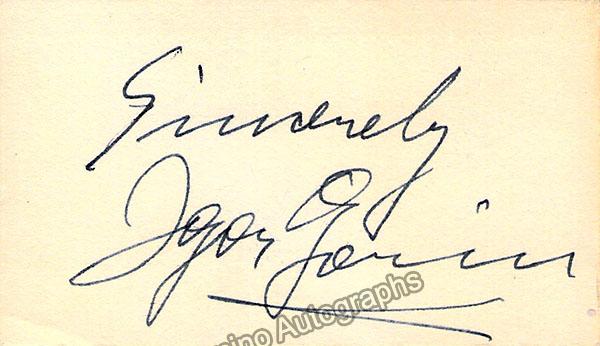 Sincerely
Igor Gorin
Autographs